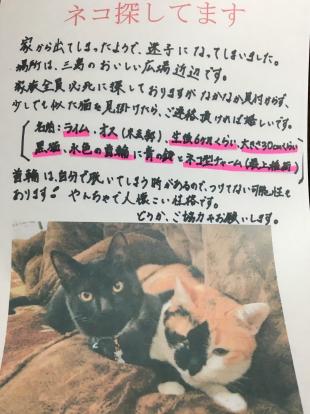 ネコ探してます
家から出てしまったようで、迷子になってしまいました。
場所は、三島のおいしい広場近辺です。
家族全員必死に探しておりますがなかなか見付からず、
少しでも似た猫を見掛けたら、ご連絡頂ければ嬉しいです。
名前・ライム、オス(未去勢)、生後6ヶ月くらい、大きさ30cmくらい
黒猫、水色の首輪に青の鈴とネコ型チャーム(最上
首輪は、自分で脱いでしまう時があるので、つけてない可能性も
あります。やんちゃで人懐こい性格です。
どうか、ご協力お願いします。